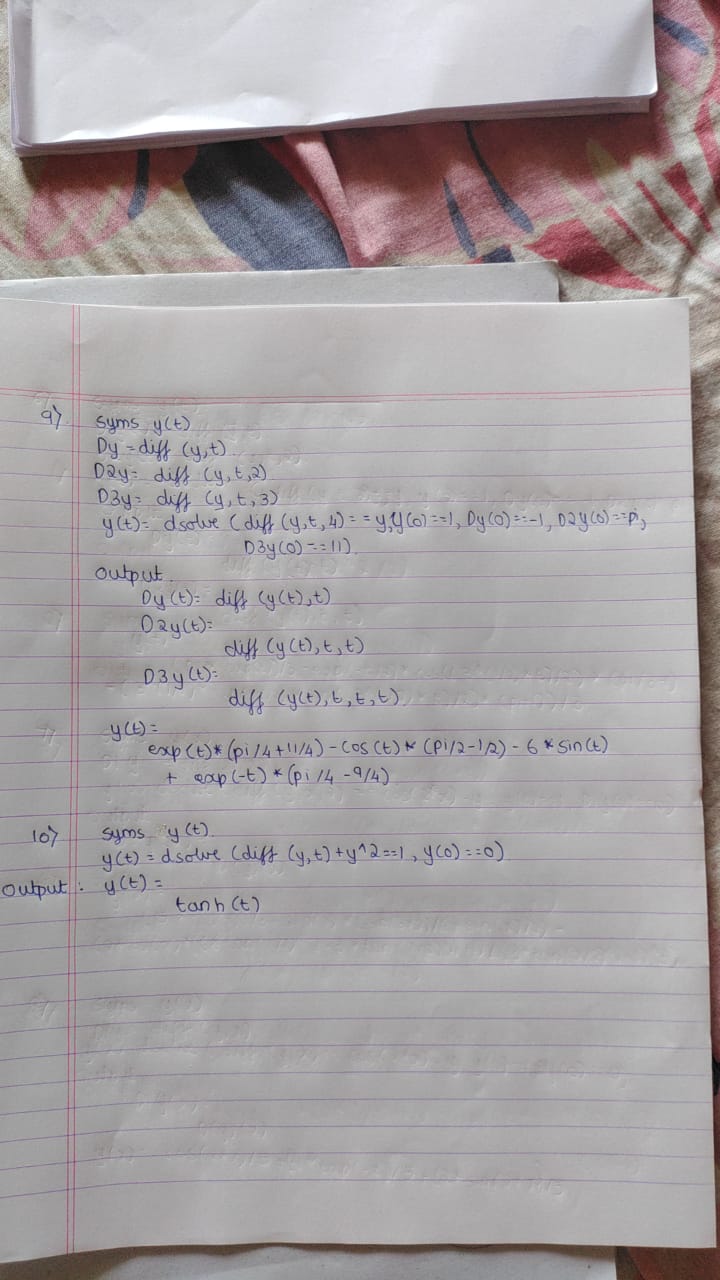 9) syms y(t)
Dy = diff (y,t)
D2y = diff (y,t,2)
D3y = diff (y,t,3)
y(t) = dsolve (diff (y,t,4) == y, y(0)==1, Dy(0)==-1, D2y(0)==pi,
D3y(0)==11)
Output.
Dy(t) = diff (y(t),t)
D2y(t) =
diff (y(t),t,t)
D3y(t) =
diff (y(t),t,t,t)
y(t) =
exp(t)*(pi/4+11/4) - cos(t)*(pi/2-1/2) - 6*sin(t)
+ exp(-t)*(pi/4-9/4)
10) syms y(t).
y(t) = dsolve (diff (y,t)+y^2==1, y(0)==0)
Output: y(t) =
tanh(t)